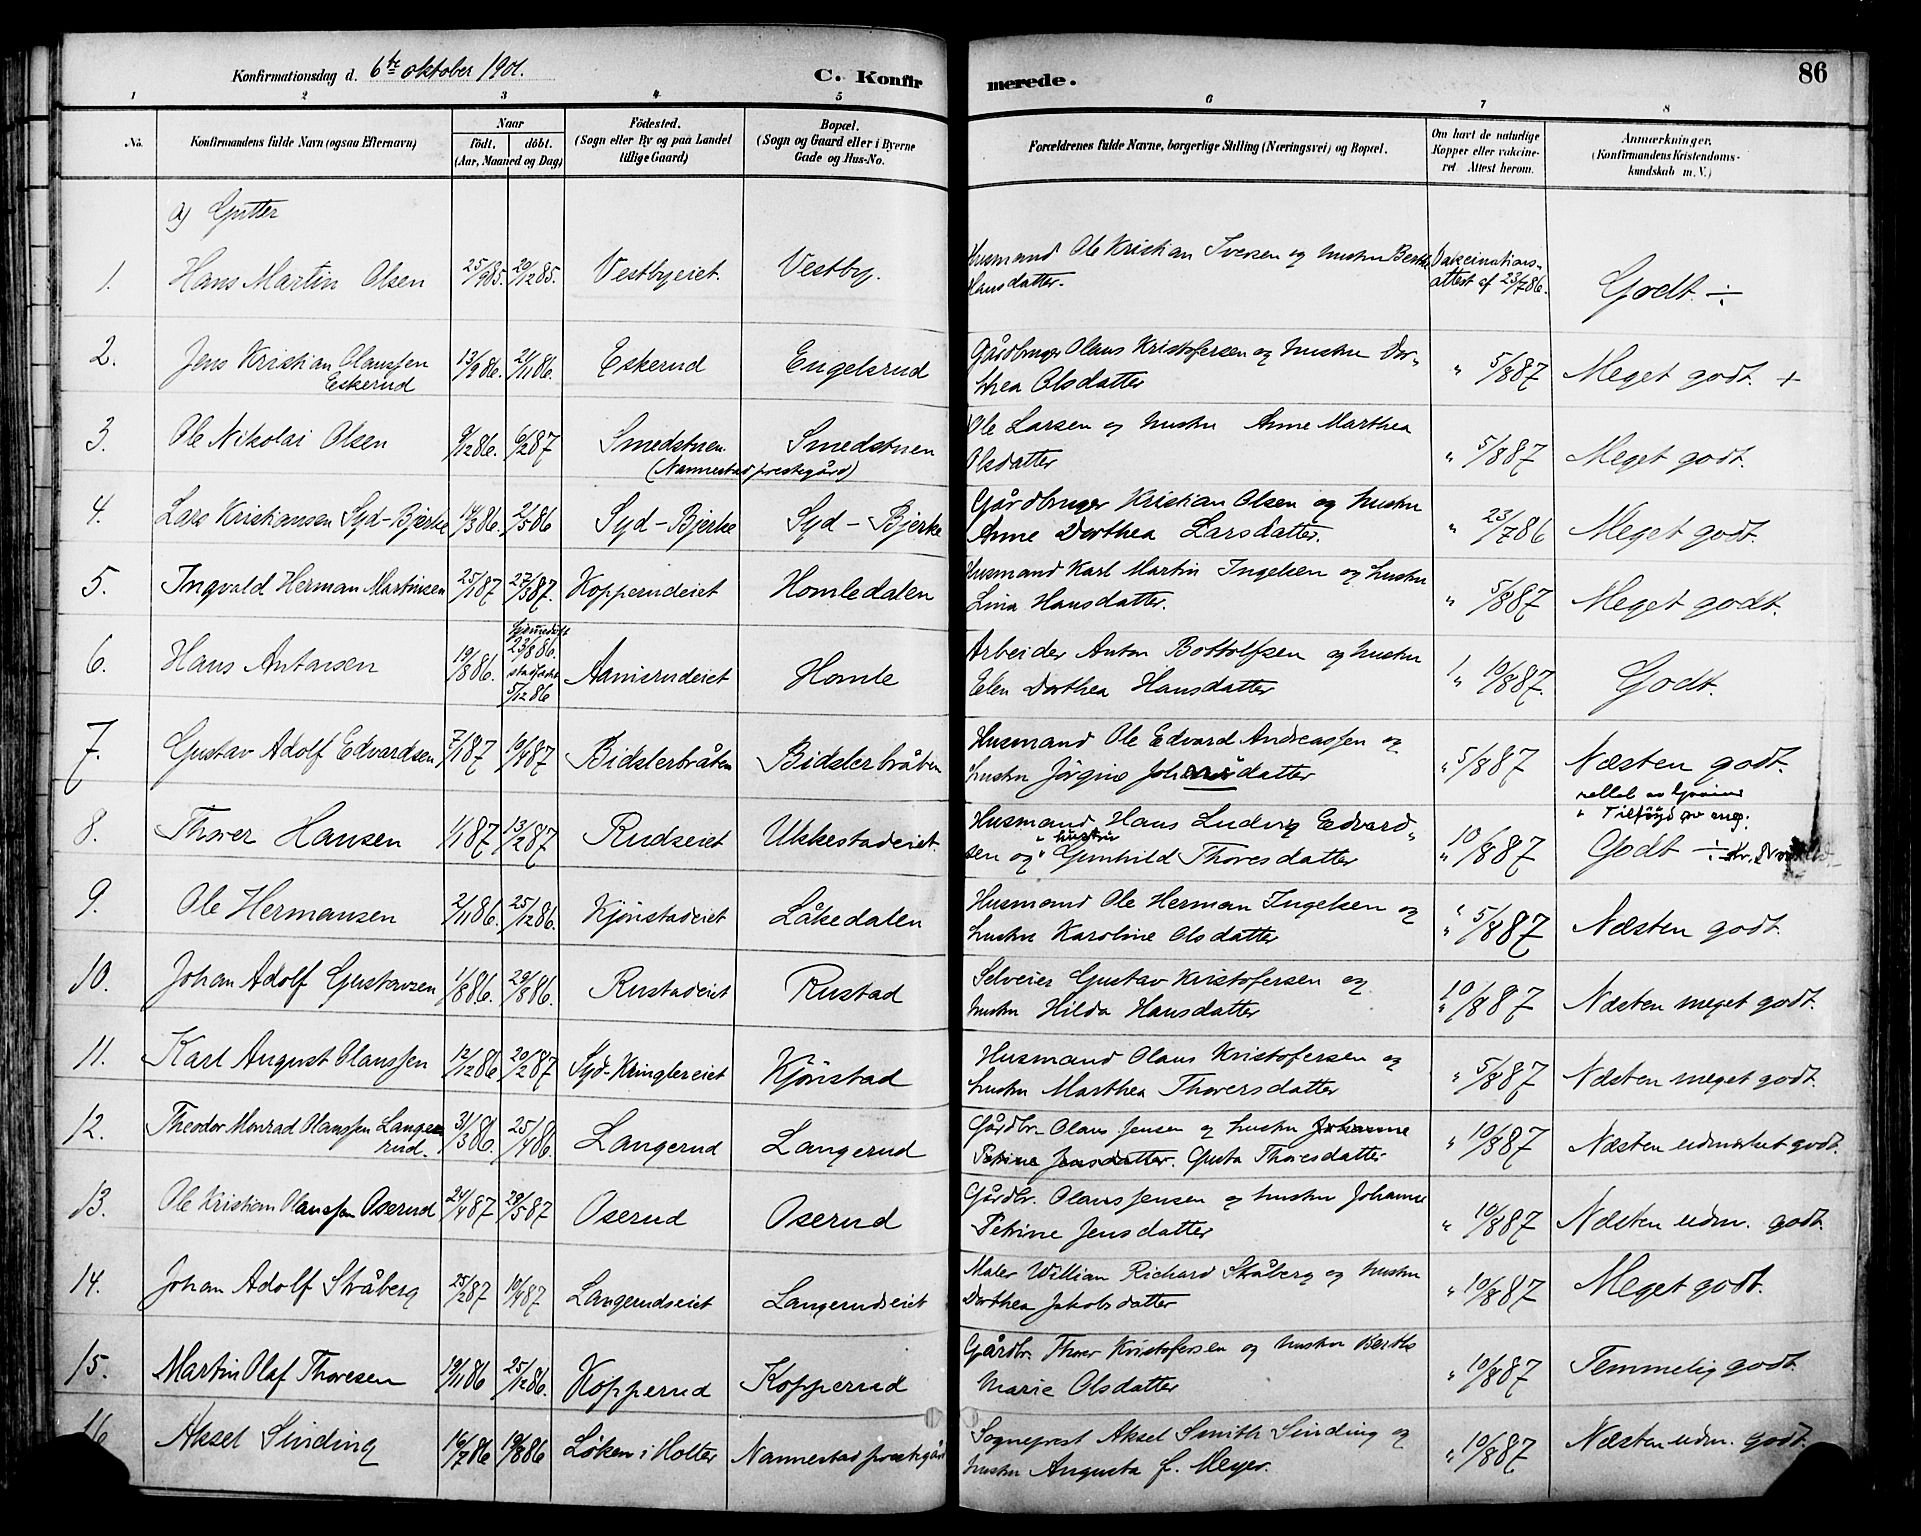 Konfirmationsdag d. 6te oktober 1901.
C. Konfirmerede.
86
1 2 3 4 5 6 7 8
No. Konfirmandens fulde Navn (ogsaa Efternavn) Naar født, døbt, (Aar, Maaned og Dag) Fødested. (Sogn eller By og paa Landet tillige Gaard) Bopæl. (Sogn og Gaard eller i Byerne Gade og Hus-No. Forældrenes fulde Navne, borgerlige Stilling (Næringsvei) og Bopæl. Om havt de naturlige Kopper eller vakcineret. Attest herom. Anmerkninger. (Konfirmandens Kristendomskundskab m. V.)
a) Gutter
1. Hans Martin Olsen 25/9 85. 20/12 85. Vestbyeiet Vestby. Husmand Ole Kristian Iversen og hustru Berthe Hansdatter. Vakcinations-attest af 23/7 86. Godt ÷
2. Jens Kristian Olaussen Eskerud 13/9 86. 21/11 86. Eskerud Engelsrud Gårdbruger Olaus Kristofersen og hustru Dorthea Olsdatter " 5/8 87 Meget godt. +
3. Ole Nikolai Olsen 9/12 86. 6/2 87 Smedstuen (Nannestad prestegård) Smedstuen Ole Larsen og hustru Anne Marthea Olsdatter " 5/8 87 Meget godt.
4. Lars Kristiansen Syd-Bjerke 14/3 86. 2/5 86 Syd-Bjerke Syd-Bjerke Gårdbruger Kristian Olsen og hustru Anne Dorthea Larsdatter. " 23/7 86 Meget godt.
5. Ingvald Herman Martinsen 25/1 87 27/3 87. Kopperudeiet Homledalen Husmand Karl Martin Ingelsen og hustru Lina Hansdatter. " 5/8 87 Meget godt.
6. Hans Antonsen 19/8 86. hjemmedøbt 23/8 86. stadfæstet 5/12 86 Aamerudeiet Homle Arbeider Anton Bottolfsen og hustru Elen Dorthea Hansdatter " 10/8 87. Godt.
7. Gustav Adolf Edvardsen 7/1 87 10/4 87 Bidslerbråten Bidslerbråten Husmand Ole Edvard Andreassen og hustru Jørgine Johansdatter " 5/8 87 Næsten godt.
8. Thorer Hansen 1/1 87 13/2 87 Rudseiet Ukkestadeiet. Husmand Hans Ludvig Edvardsen og "hustru" Gunhild Thoresdatter " 10/8 87 Godt ÷
9. Ole Hermansen 2/11 86. 25/12 86. Kjønstadeiet Låkedalen Husmand Ole Herman Ingelsen og hustru Karoline Olsdatter " 5/8 87 Næsten godt.
10. Johan Adolf Gustavsen 1/8 86. 29/8 86. Rustadeiet Rustad Selveier Gustav Kristofersen og hustru Hilda Hansdatter " 10/8 87 Næsten meget godt.
11. Karl August Olaussen 12/12 86 20/2 87 Syd-Kringlereiet Kjønstad Husmand Olaus Kristofersen og hustru Marthea Thorersdatter " 5/8 87 Næsten meget godt.
12. Theodor Monrad Olaussen Langerud. 31/3 86. 25/4 86. Langerud Langerud Gårdbr. Olaus Jensen og hustru Johanne Petrine Jensdatter. Gusta Thoresdatter " 10/8 87 Næsten udmerket godt.
13. Ole Kristian Olaussen Oserud 24/4 87 29/5 87 Oserud Oserud Gårdbr. Olaus Jensen og hustru Johanne Petrine Jensdatter " 10/8 87 Næsten udm. godt.
14. Johan Adolf Skråberg 25/2 87 10/4 87 Langerudseiet Langerudseiet Maler Willian Richard Skråberg og hustru Dorthea Jakobsdatter " 10/8 87 Meget godt.
15. Martin Olaf Thoresen 19/11 86 25/12 86. Kopperud Kopperud Gårdbr. Thorer Kristofersen og hustru Berthe Marie Olsdatter " 10/8 87 Temmelig godt.
16 Aksel Sinding 16/7 86 19/8 86 Løken i Holter Nannestad prestegård Sogneprest Aksel Smith Sinding og hustru Augusta f. Meyer. " 10/8 87 Næsten udm. godt.